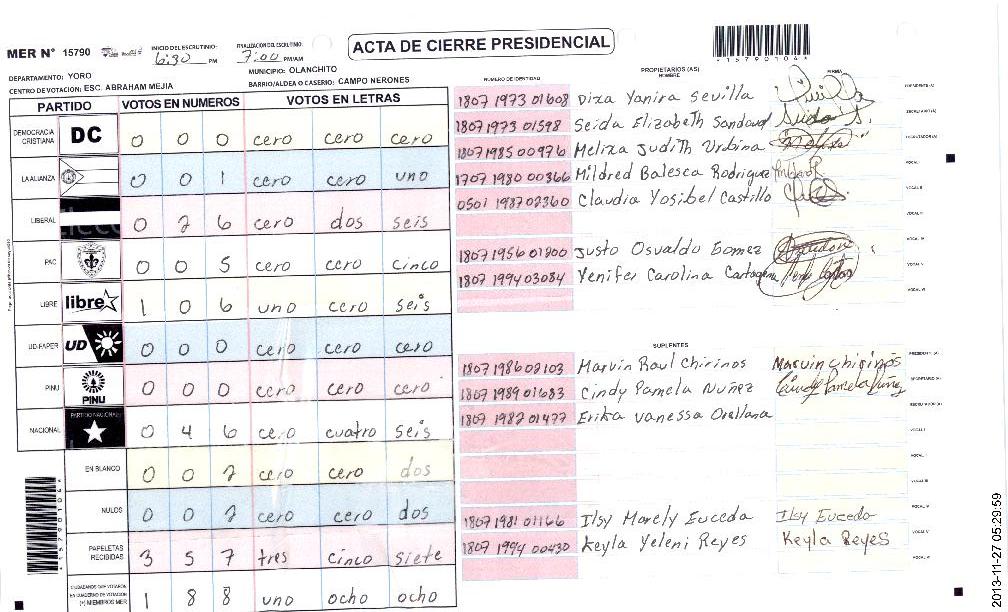 MER N° 15790
INICIO DEL ESCRUTINIO:
6:30 PM
FINALIZACION DEL ESCRUTINIO:
7:00 PM/AM
ACTA DE CIERRE PRESIDENCIAL
*15790104*
DEPARTAMENTO: YORO
MUNICIPIO: OLANCHITO
CENTRO DE VOTACION: ESC. ABRAHAM MEJIA
BARRIO/ALDEA O CASERIO: CAMPO NERONES
PARTIDO VOTOS EN NUMEROS VOTOS EN LETRAS
DEMOCRACIA CRISTIANA DC 0 0 0 cero cero cero
LA ALIANZA 0 0 1 cero cero uno
LIBERAL 0 2 6 cero dos seis
PAC 0 0 5 cero cero cinco
LIBRE libre 1 0 6 uno cero seis
UD-FAPER UD 0 0 0 cero cero cero
PINU PINU 0 0 0 cero cero cero
NACIONAL PARTIDO NACIONAL 0 4 6 cero cuatro seis
EN BLANCO 0 0 2 cero cero dos
NULOS 0 0 2 cero cero dos
PAPELETAS RECIBIDAS 3 5 7 tres cinco siete
CIUDADANOS QUE VOTARON EN CUADERNO DE VOTACION (+) MIEMBROS MER 1 8 8 uno ocho ocho
NUMERO DE IDENTIDAD
PROPIETARIOS (AS)
NOMBRE
FIRMA
1807 1973 01608 Dixa Yanira Sevilla PRESIDENTE (A)
1807 1973 01598 Seida Elizabeth Sandoval SECRETARIO (A)
1807 1985 00976 Meliza Judith Urbina ESCRUTADOR (A)
1707 1980 00366 Mildred Balesca Rodriguez VOCAL I
0501 1987 02360 Claudia Yosibel Castillo VOCAL II
VOCAL III
1807 1956 01800 Justo Osvaldo Gomez VOCAL IV
1807 1994 03084 Yenifer Carolina Cartagena VOCAL V
VOCAL VI
SUPLENTES
1807 1986 02103 Marvin Raul Chirinos Marvin Chirinos PRESIDENTE (A)
1807 1989 01683 Cindy Pamela Nuñez Cindy Pamela Nuñez SECRETARIO (A)
1807 1987 01477 Erika Vanessa Orellana ESCRUTADOR (A)
VOCAL I
VOCAL II
VOCAL III
1807 1981 01166 Ilsy Marely Euceda Ilsy Euceda VOCAL IV
1807 1994 00430 Keyla Yeleni Reyes Keyla Reyes VOCAL V
VOCAL VI
*15790104*
2013-11-27 05:29:59